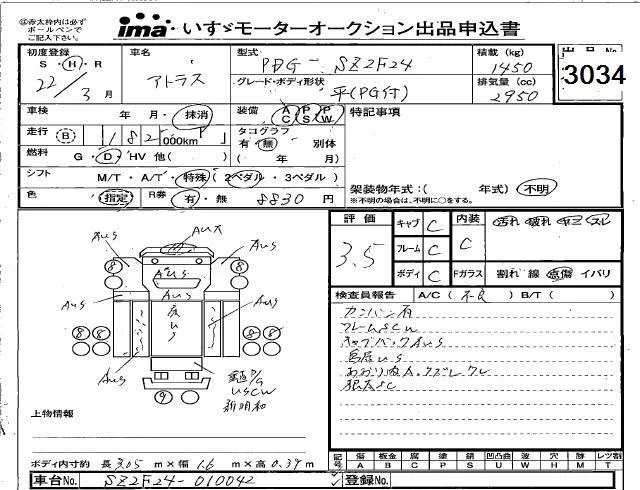 ㊟赤太枠内は必ず
ボールペンで
ご記入下さい。
ima いすゞモーターオークション出品申込書
初度登録 車名 型式 積載 (kg) 出品No
S・H・R アトラス PDG- SZ2F24 1450 3034
22/3月 グレード・ボディ形状 平(PG付) 排気量 (cc) 2950
車検 年・月・抹消 装備 AC PS PW 特記事項
走行 B 182 000km タコグラフ
有・無 別体
燃料 G・D・HV 他( ) ( 年 月)
シフト M/T・A/T・特殊 (2ペダル・3ペダル) 架装物年式:( 年式) 不明
※不明の場合は、不明に○をする。
色 指定 R券 有・無 8830 円
評価 キャブ C 内装 汚れ 破れ
3.5 フレーム C C
ボディ C Fガラス 割れ 線 点傷 イバリ
検査員報告 A/C(不良) B/T( )
カンバン有
フレームSCW
キャブバックAUS
鳥居US
AUS AUX AUS
8 AUS 8
AUS AUS AUS
8 8 8 8
AUS
9
USCW
新明和
上物情報
ボディ内寸約 長 3.05 m×幅 1.6 m×高 0.37 m
記号 傷 A 板金 B 腐 C 塗 P 錆 S 凹凸曲 U 波 W 穴 H 跡 M レツ割 T
車台No. SZ2F24-010042 登録No.